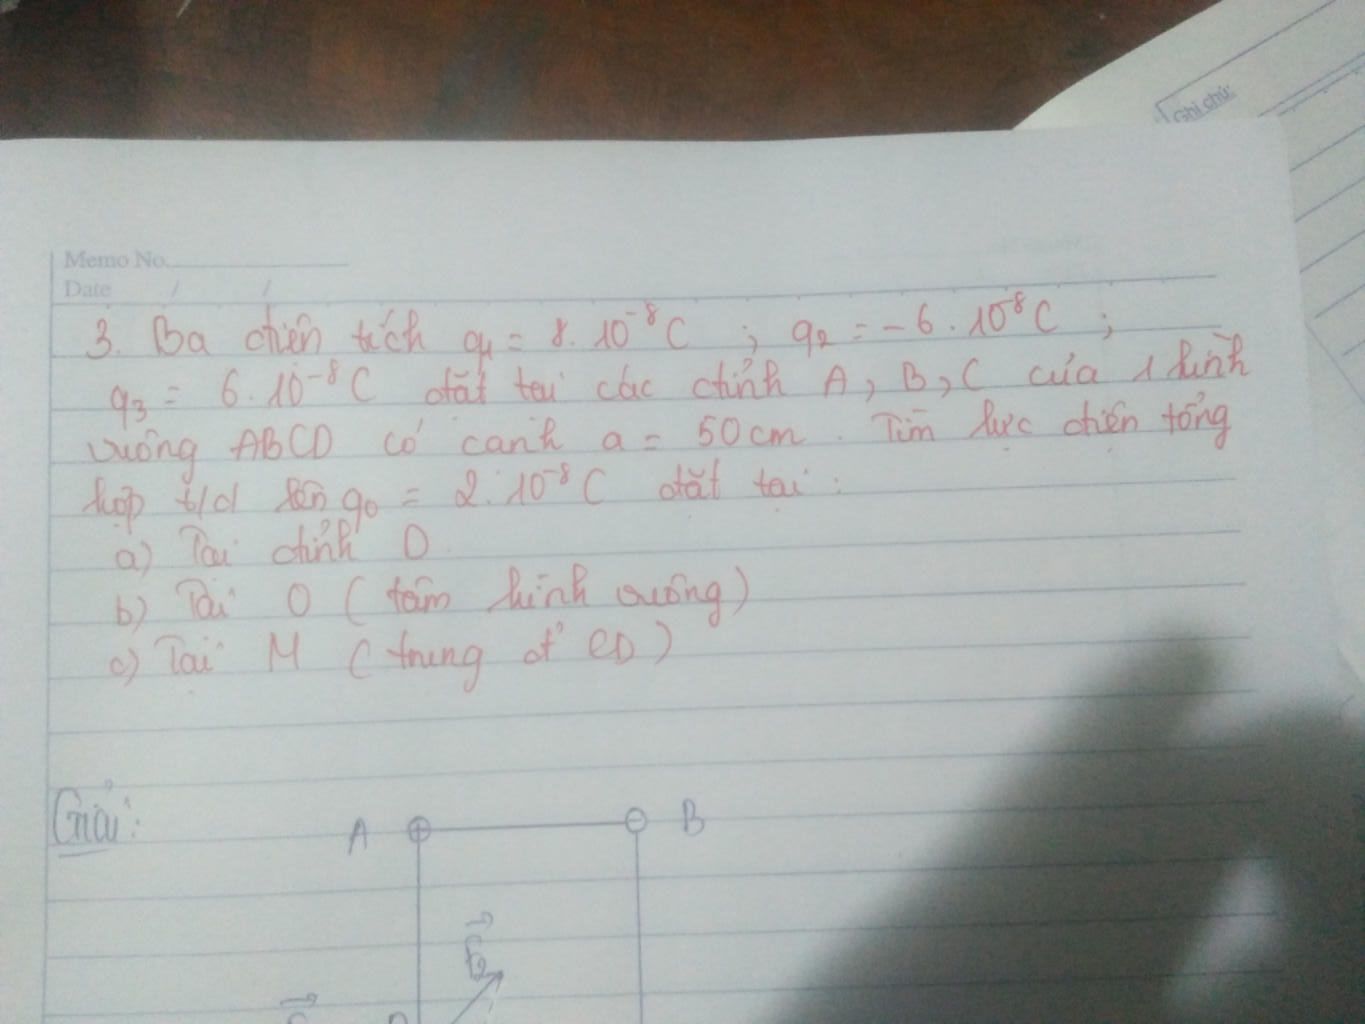 Ghi chú:
Memo No.
Date / /
3. Ba điện tích q1 = 8. 10⁻⁸C ; q2 = -6. 10⁻⁸C ;
q3 = 6. 10⁻⁸C đặt tại các đỉnh A, B, C của 1 hình
vuông ABCD có cạnh a = 50cm. Tìm lực điện tổng
hợp t/d lên q0 = 2. 10⁻⁸C đặt tại :
a) Tại đỉnh D.
b) Tại O ( tâm hình vuông)
c) Tại M ( trung đ' CD )
Giải:
A ⊕ ⊖ B
F2